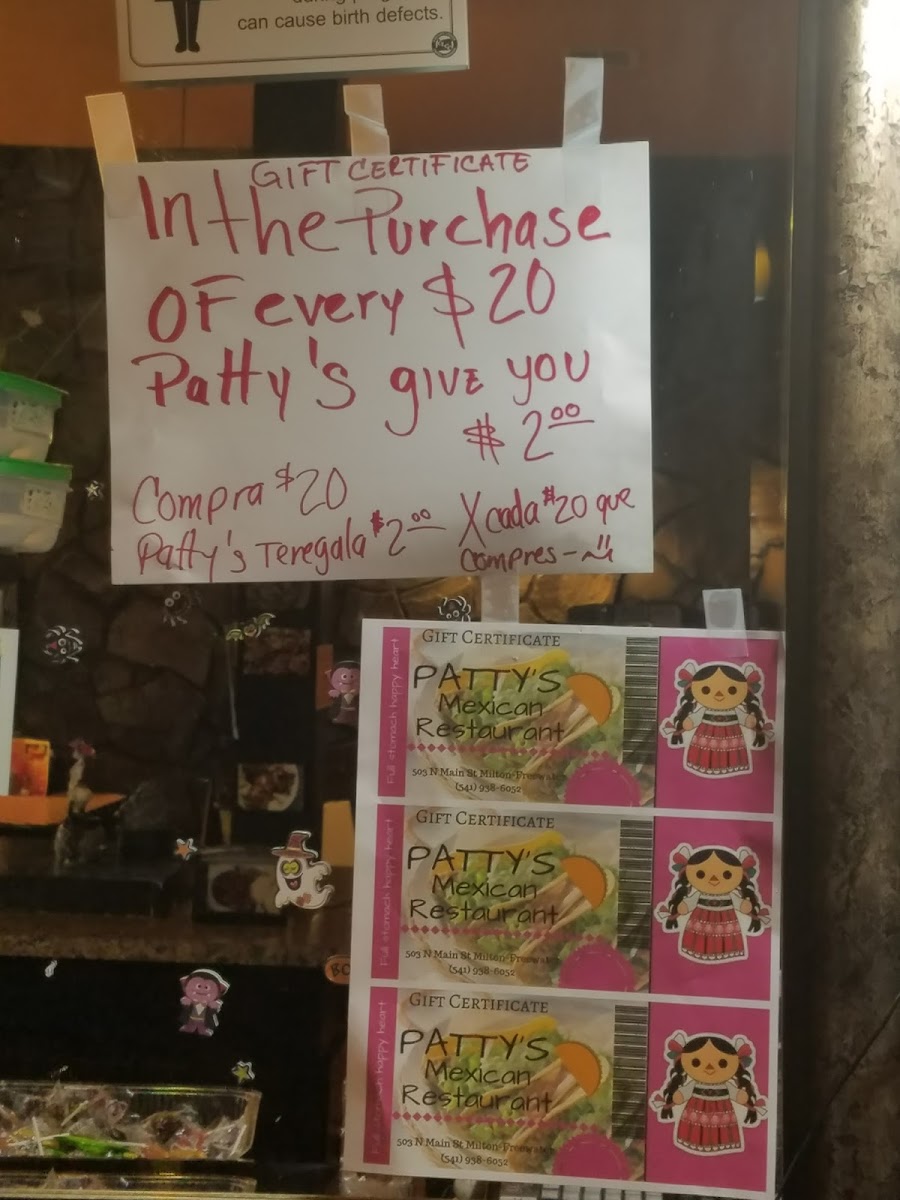 can cause birth defects.
GIFT CERTIFICATE
In the Purchase
OF every $20
Patty's give you
$ 2.00
Compra $20
Patty's Teregala $2.00 X cada $20 que
compres
GIFT CERTIFICATE
Full stomach happy heart
PATTY'S
Mexican
Restaurant
503 N Main St Milton-Freewater
(541) 938-6052
GIFT CERTIFICATE
Full stomach happy heart
PATTY'S
Mexican
Restaurant
503 N Main St Milton-Freewater
(541) 938-6052
GIFT CERTIFICATE
Full stomach happy heart
PATTY'S
Mexican
Restaurant
503 N Main St Milton-Freewater
(541) 938-6052